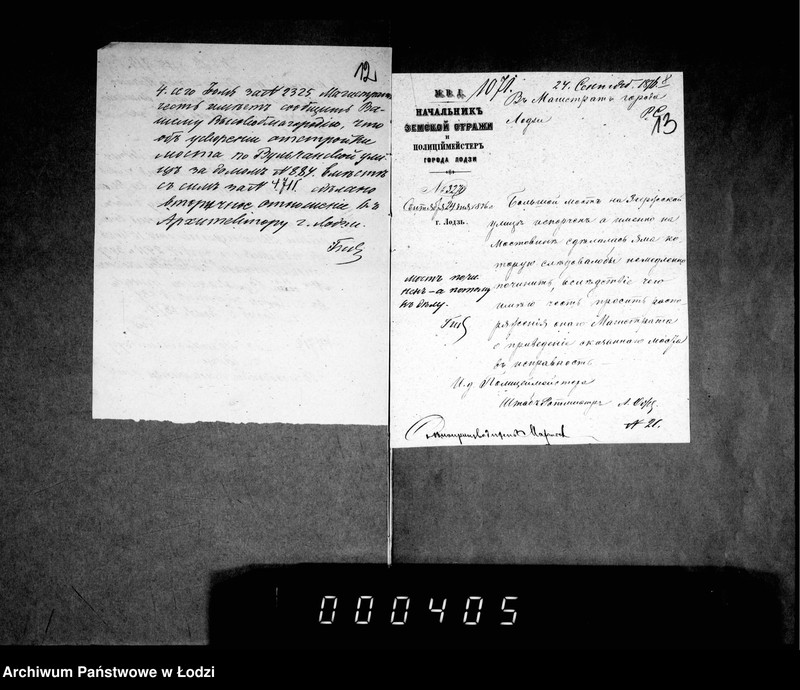 12
4. сего Іюля за № 2325, Магистратъ
честь имѣетъ сообщить Ва-
шему Высокоблагородію, что
объ ускореніи отстройки
моста по Вульчанской ули-
цѣ за домомъ № 884. вмѣстѣ
съ симъ за № 4711. сдѣлано
вторичное отношеніе къ
Архитектору г. Лодзи.
М. В. Д.
НАЧАЛЬНИКЪ
ЗЕМСКОЙ СТРАЖИ
и
ПОЛИЦІЙМЕЙСТЕРЪ
ГОРОДА ЛОДЗИ
Сентября 24 дня 1876 г.
г. Лодзь.
1071.
24. Сентяб. 1876
Въ Магистратъ города
Лодзи
13
Большой мостъ на Згержской
улицѣ испорченъ а именно на
Мостовинѣ сдѣлалась яма ко-
торую слѣдовало бы немедленно
починить, вслѣдствіе чего
имѣю честь просить распо-
ряженія онаго Магистрата
о приведеніи сказаннаго моста
въ исправность —
И. д. Полиціймейстера
Штабсъ-Ротмистръ
№ 21.
мостъ почи-
ненъ — а потому
къ дѣлу.
000405
Archiwum Państwowe w Łodzi